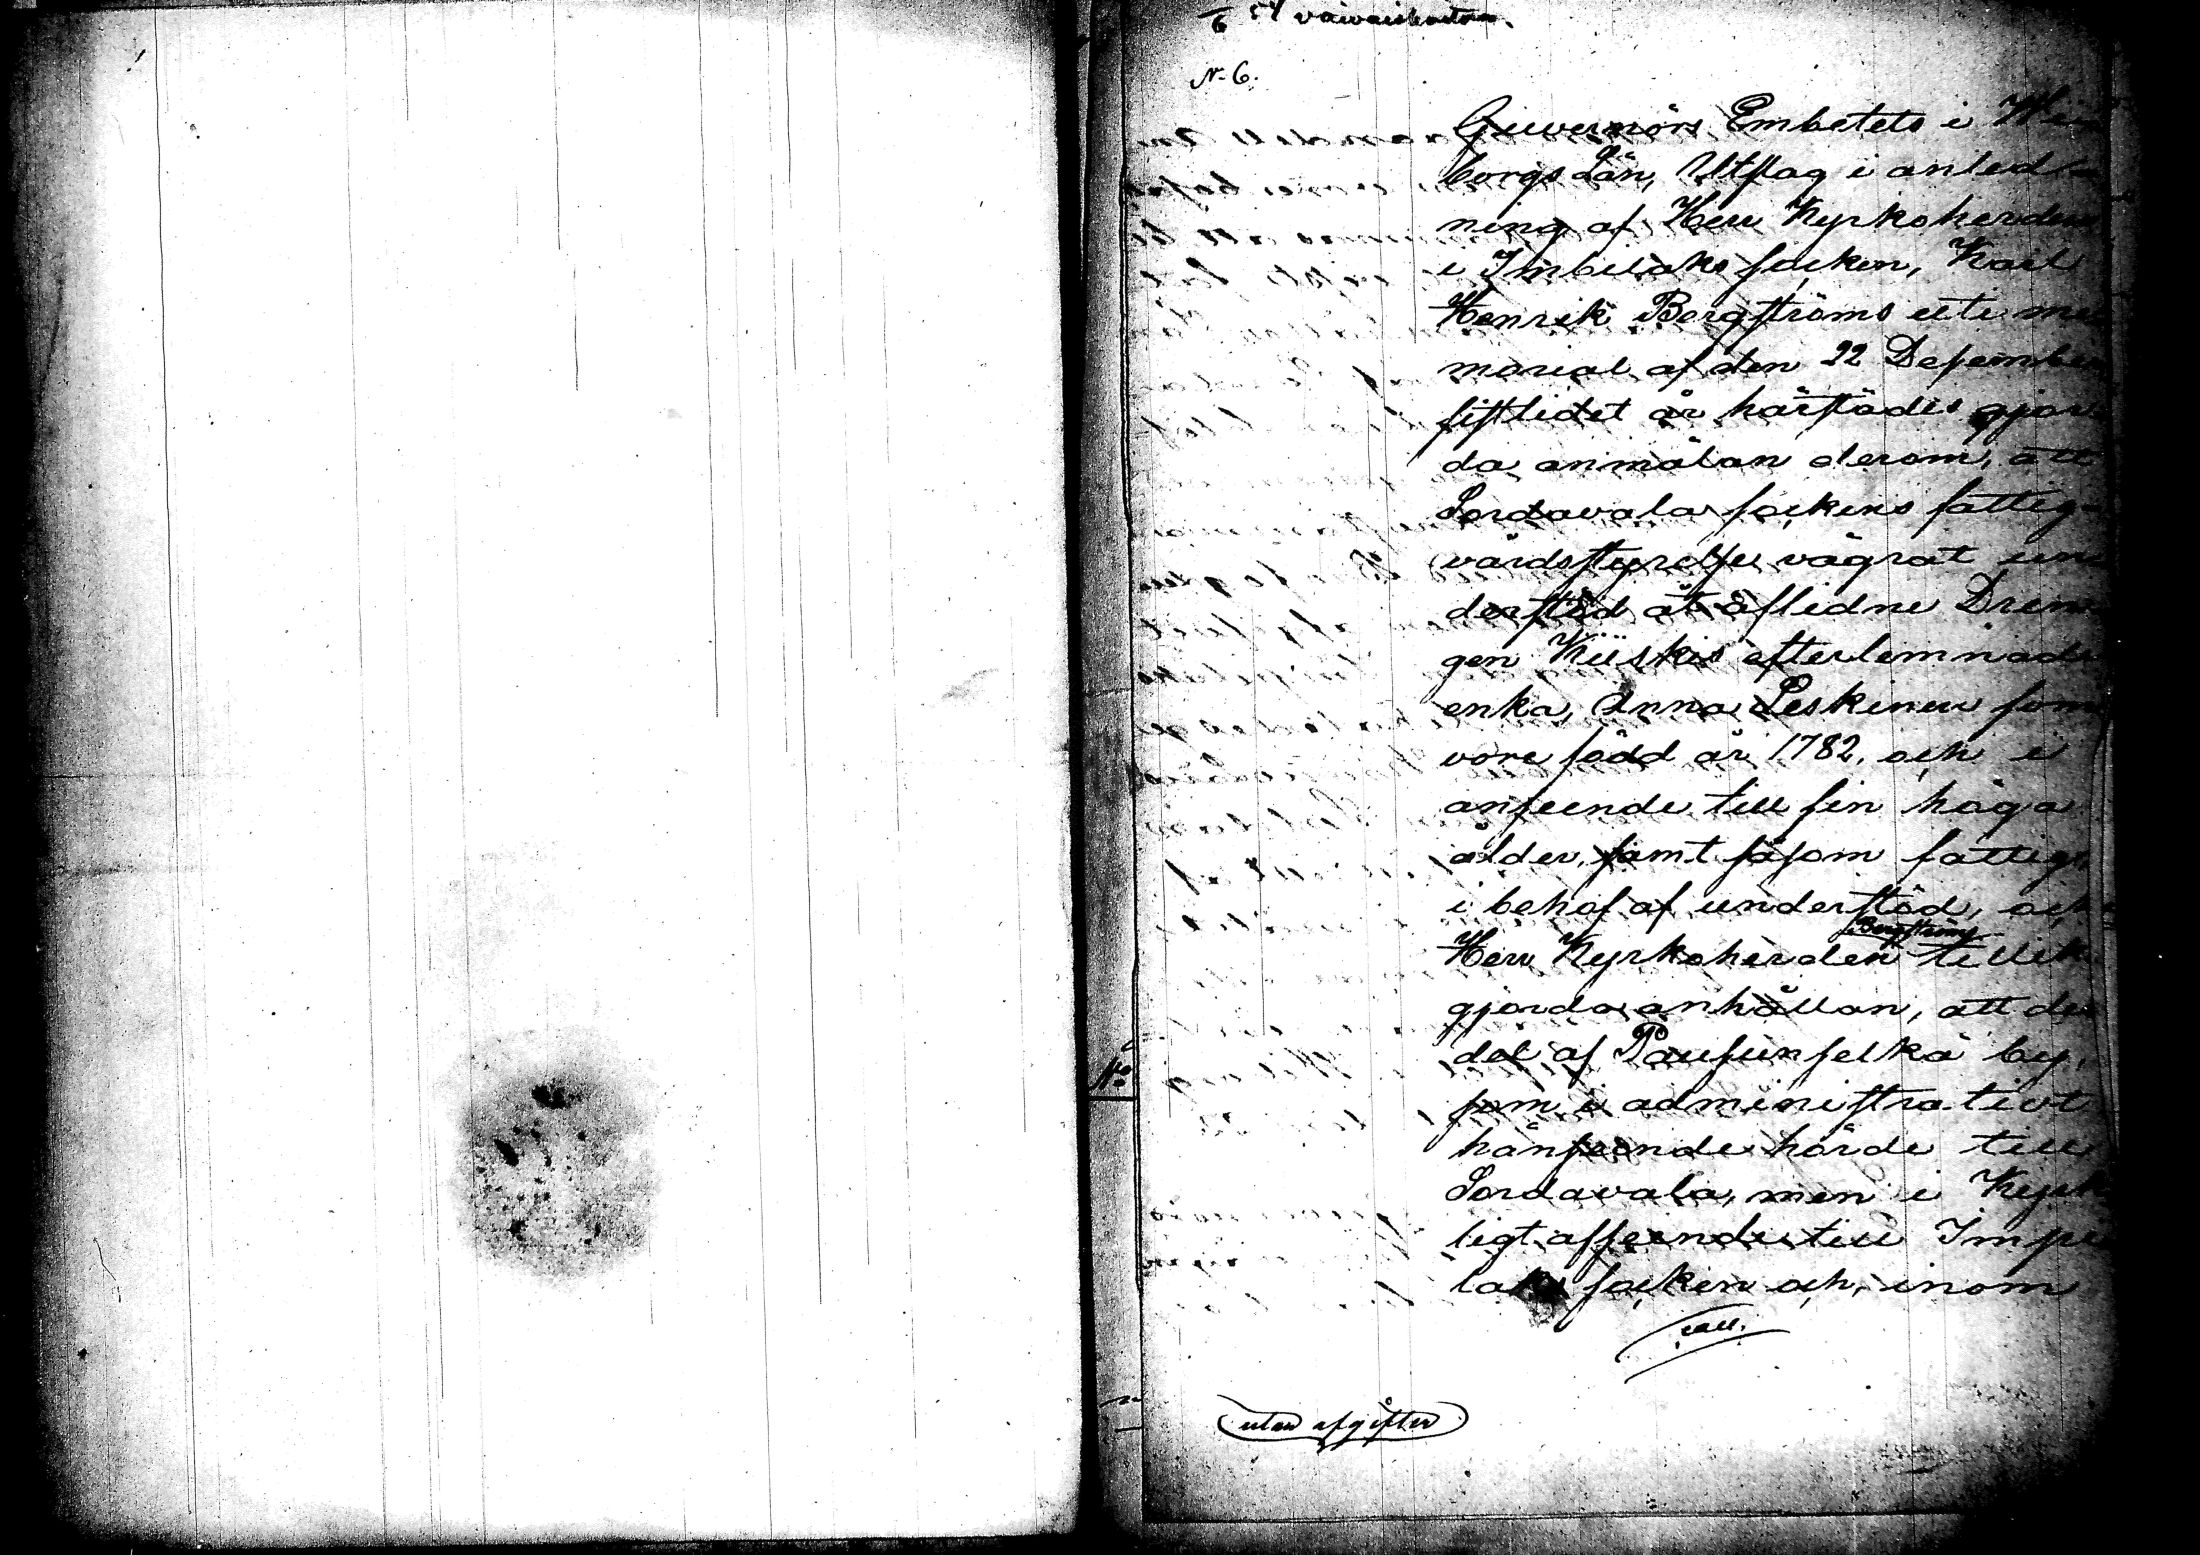 N. 6.
Guvernörs Embetets i Wi
borgs Län, Utslag i anled-
ning af Herr Kyrkoherden
i Imbilaks socken, Karl
Henrik Bergströms uti me
morial af den 22 December
sistlidet år härstädes gjor
da anmälan derom, att
Sordavala sockens fattig-
vårdsstyrelse vägrat un
derstöd åt aflidne Dren
gen Kiiskis efterlemnade
enka, Anna Leskinen som
vore född år 1782, och i
anseende till sin höga
ålder, samt såsom fattig,
i behof af understöd, och
Bergström
Herr Kyrkoherden tillik
gjorda anhållan, att de
del af Pausunselkä by,
som i administrativt
hänseende hörde till
Sordavala, men i Kyrk
ligt afseende till Impi
laks socken och, inom
utan afgifter